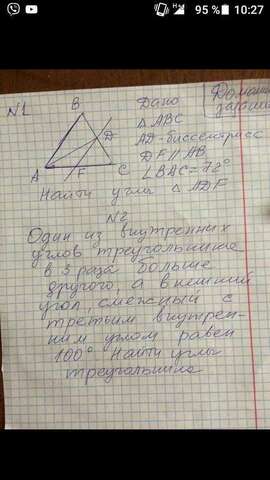 95 % 10:27
N1
B
Дано
Домашн
задани
△ABC
D
AD-биссектрисс
DF∥AB
A F C
∠BAC=72°
Найти углы △ ADF
N2
Один из внутренних
углов треугольника
в 3 раза больше
другого, а внешний
угол, смежный с
третьим внутрен-
ним углом равен
100° Найти углы
треугольника